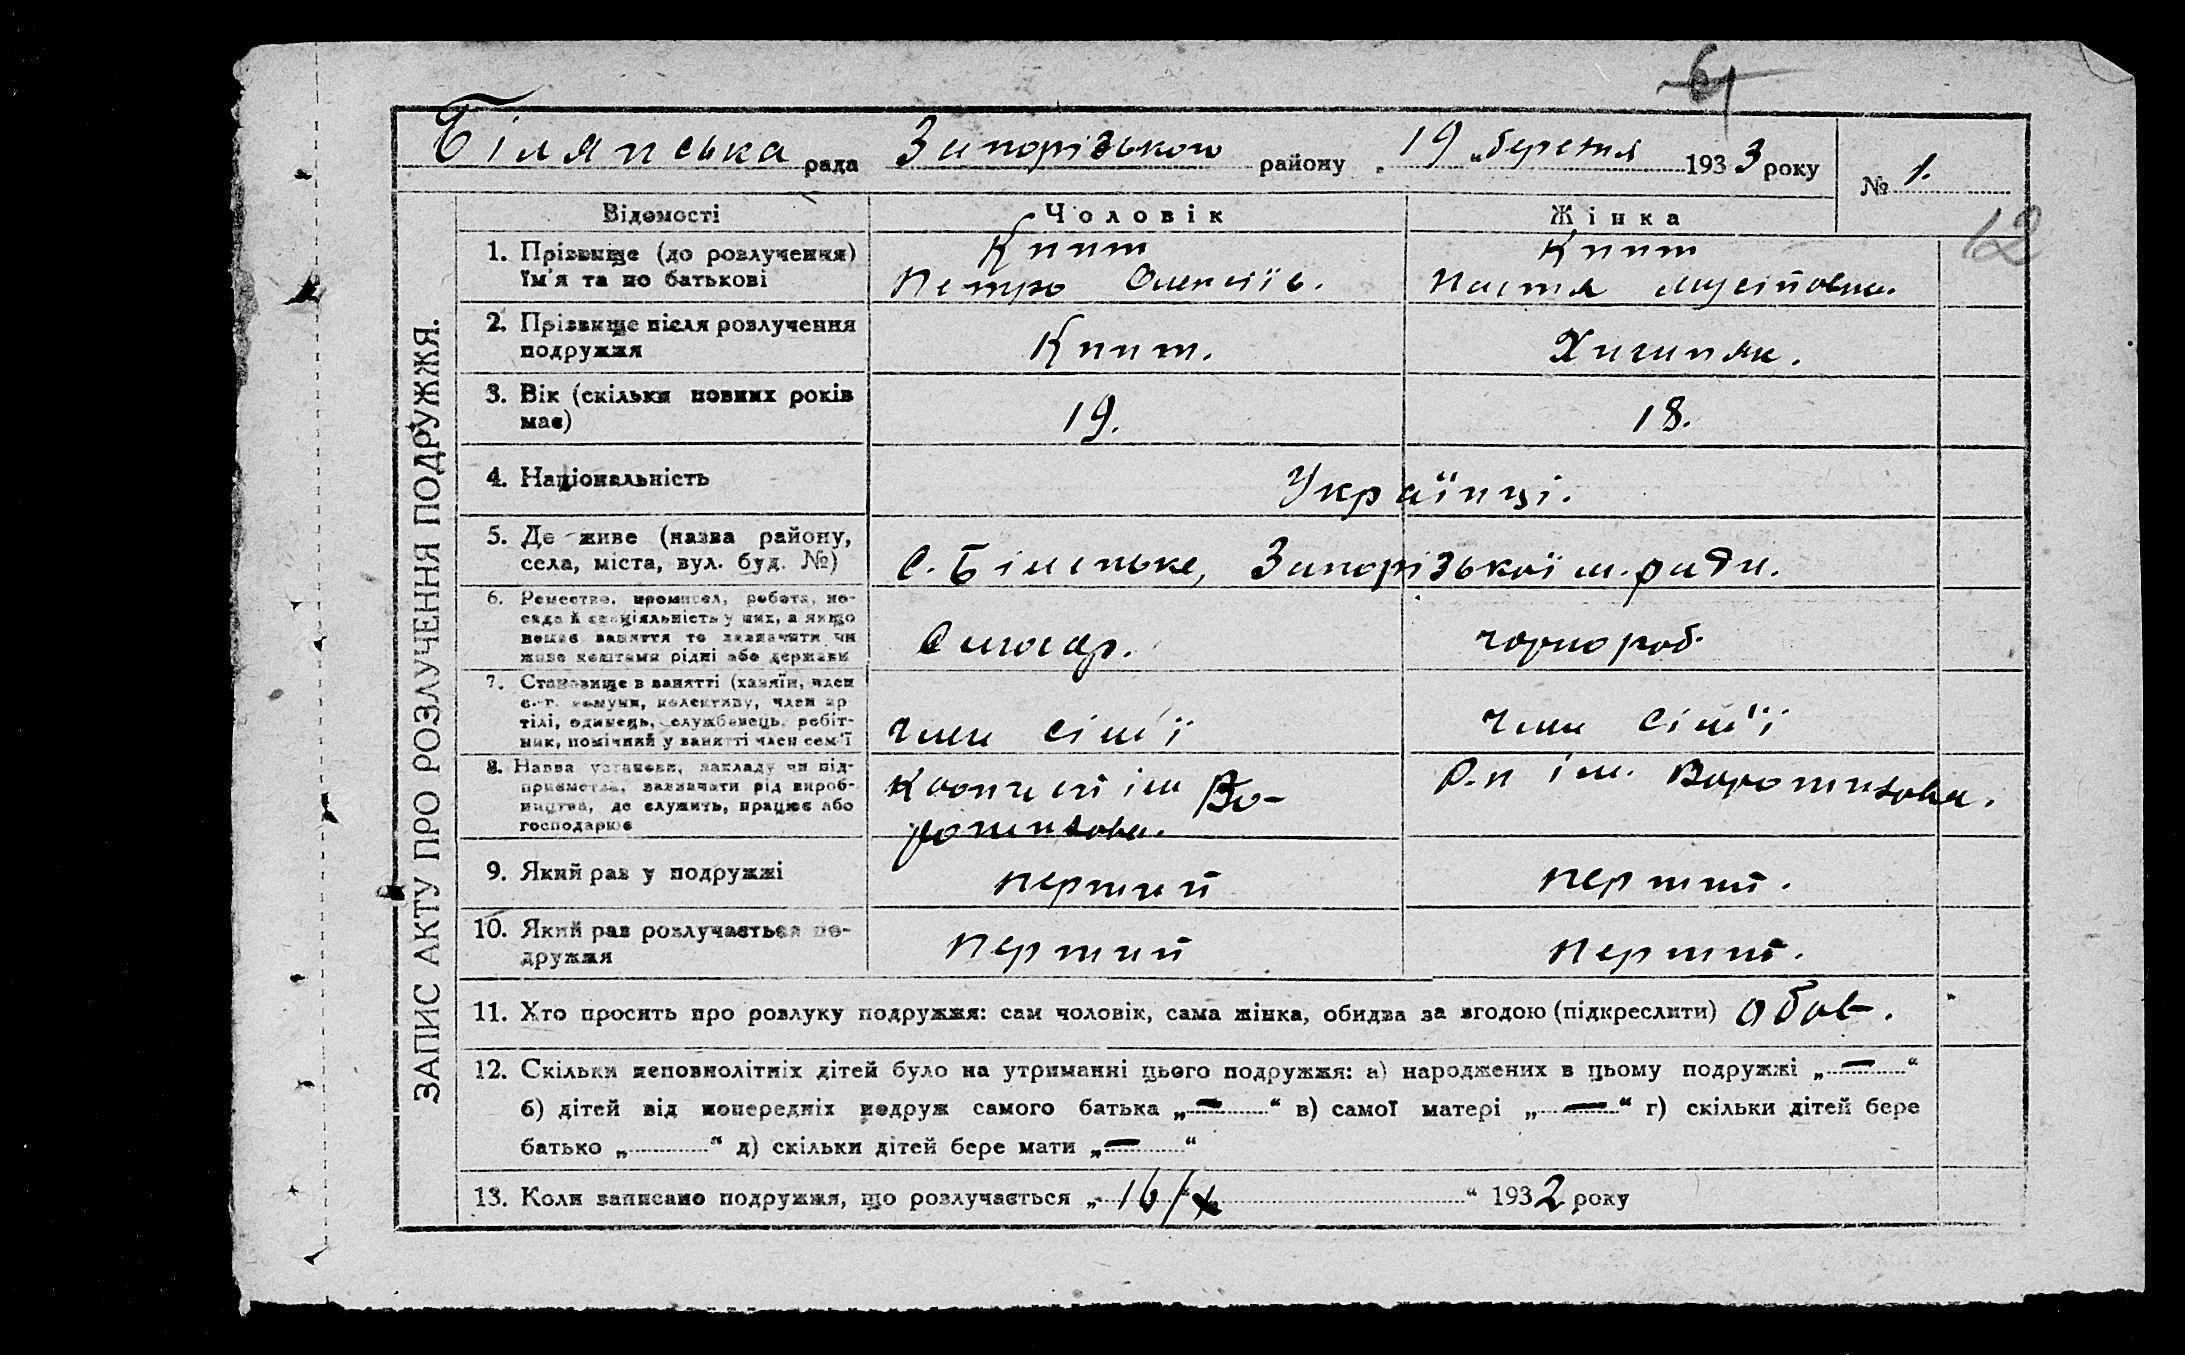 61
Білянська рада Запорізького району „ 19 “ березня 1933 року № 1.
12
ЗАПИС АКТУ ПРО РОЗЛУЧЕННЯ ПОДРУЖЖЯ.
Відомості Чоловік Жінка
1. Прізвище (до розлучення) Книш Книш
ім'я та по батькові Петро Олексіїв. Настя
2. Прізвище після розлучення
подружжя Книш.
3. Вік (скільки повних років
має) 19. 18.
4. Національність Українці.
5. Де живе (назва району,
села, міста, вул. буд. №) С. Біленьке, Запорізької м. ради.
6. Ремество, промисел, робота, по-
сада й спеціяльність у них, а якщо
немає заняття то зазначити чи
живе коштами рідні або держави чорнороб.
7. Становище в занятті (хазяїн, член
с.-г. комуни, колективу, член ар
тілі, одинець, службовець, робіт-
ник, помічний у занятті член сем'ї член сім'ї член сім'ї
8. Назва установи, закладу чи під-
приємства, зазначати рід вироб-
ництва, де служить, працює або
господарює ім Во-
рошилова. ім. Ворошилова.
9. Який раз у подружжі перший перший.
10. Який раз розлучається по-
дружжя перший перший.
11. Хто просить про розлуку подружжя: сам чоловік, сама жінка, обидва за згодою (підкреслити) обов.
12. Скільки неповнолітніх дітей було на утриманні цього подружжя: а) народжених в цьому подружжі „ — “
б) дітей від попередніх подруж самого батька „ — “ в) самої матері „ — “ г) скільки дітей бере
батько „ “ д) скільки дітей бере мати „ — “
13. Коли записано подружжя, що розлучається „ 16/X “ 1932 року